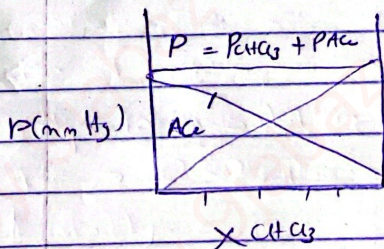 P = PCHCl3 + PAce
P(mm Hg)
Ace
X CHCl3